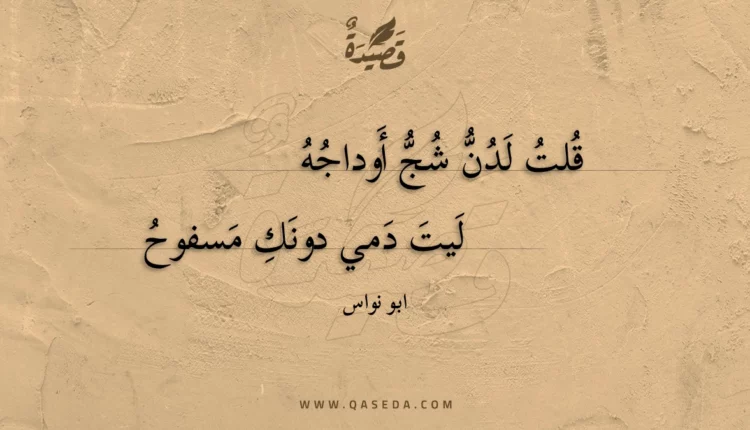 قَصِيْدَةٌ
قُلتُ لَدُنُّ شُجُّ أَوداجُهُ
لَيتَ دَمي دونَكِ مَسفوحُ
ابو نواس
WWW.QASEDA.COM